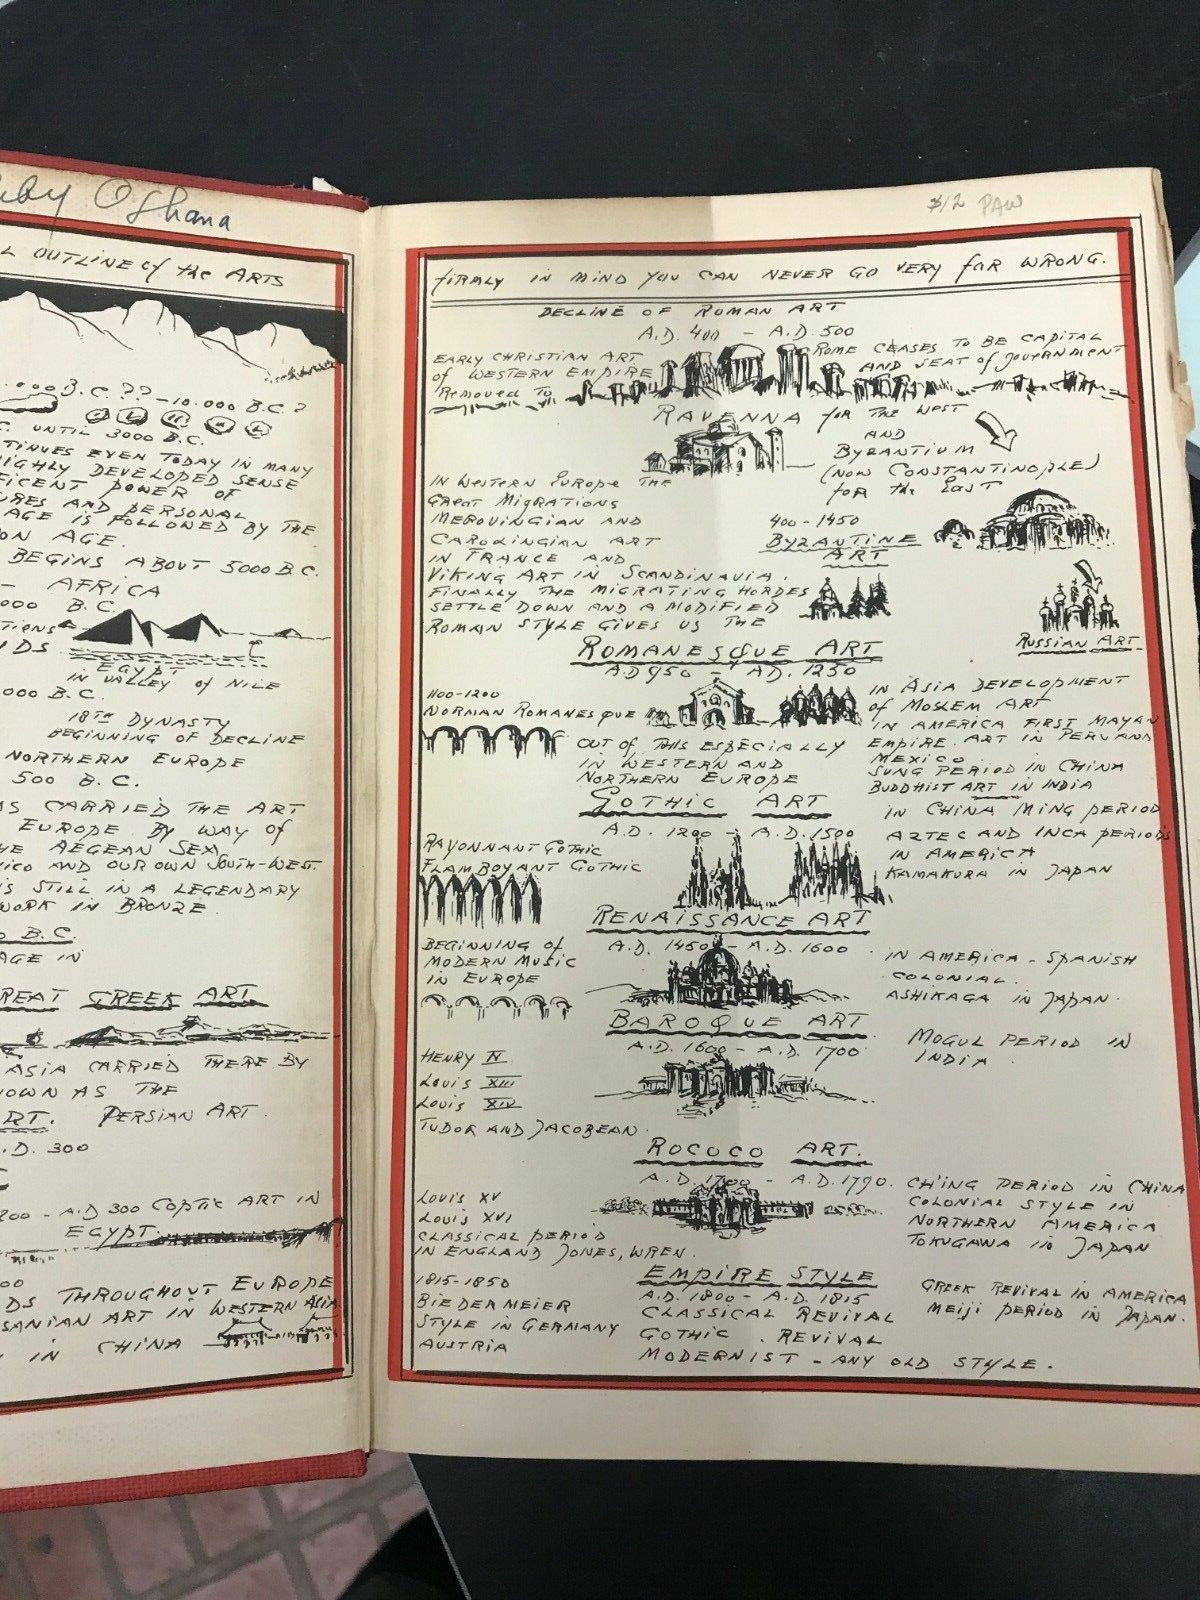 Oshana
L OUTLINE of the ARTS
.000 B.C.?? - 10.000 B.C.?
C. UNTIL 3000 B.C.
TINUES EVEN TODAY IN MANY
IGHLY DEVELOPED SENSE
FICENT POWER OF
URES AND PERSONAL
AGE IS FOLLOWED BY THE
ON AGE.
BEGINS ABOUT 5000 B.C.
- AFRICA
000 B.C.
TIONS
IDS
EGYPT
IN VALLEY of NILE
000 B.C.
18TH DYNASTY
BEGINNING OF DECLINE
NORTHERN EUROPE
500 B.C.
AS CARRIED THE ART
EUROPE BY WAY of
HE AEGEAN SEA
ICO AND OUR OWN SOUTH-WEST.
IS STILL IN A LEGENDARY
WORK IN BRONZE.
0 B.C.
AGE IN
REAT GREEK ART
ASIA CARRIED THERE BY
NOWN AS THE
RT. PERSIAN ART.
.D. 300
200 - A.D 300 COPTIC ART IN
EGYPT
00
DS THROUGHOUT EUROPE
SANIAN ART IN WESTERN ASIA
IN CHINA
$12 PAW
firmly in mind you can never go very far wrong.
DECLINE OF ROMAN ART
A.D. 400 - A.D. 500
EARLY CHRISTIAN ART
of WESTERN EMPIRE
Removed To
ROME CEASES TO BE CAPITAL
AND SEAT of government
RAVENNA for the West
AND
BYZANTIUM
(NOW CONSTANTINOPLE)
for the East
IN Western Europe THE
Great Migrations
MEROVINGIAN AND
CAROLINGIAN ART
IN FRANCE AND
VIKING ART IN SCANDINAVIA.
FINALLY THE MIGRATING HORDES
SETTLE DOWN AND A MODIFIED
ROMAN STYLE GIVES US THE
400-1450
BYZANTINE
ART
RUSSIAN ART
ROMANESQUE ART
A.D 950 - AD. 1250
1100-1200
NORMAN ROMANESQUE
OUT of THIS ESPECIALLY
IN WESTERN AND
NORTHERN EUROPE
IN ASIA DEVELOPMENT
of MOSLEM ART
IN AMERICA FIRST MAYAN
EMPIRE. ART IN PERU AND
MEXICO
SUNG PERIOD IN CHINA
BUDDHIST ART IN INDIA
GOTHIC ART
A.D. 1200 - A.D. 1500
RAYONNANT GOTHIC
FLAMBOYANT GOTHIC
IN CHINA MING PERIOD
AZTEC AND INCA PERIODS
IN AMERICA
KAMAKURA IN JAPAN
RENAISSANCE ART
A.D. 1450 - A.D. 1600
BEGINNING of
MODERN MUSIC
IN EUROPE
IN AMERICA - SPANISH
COLONIAL.
ASHIKAGA IN JAPAN.
BAROQUE ART
A.D. 1600 - A.D. 1700
HENRY IV
LOUIS XIII
LOUIS XIV
TUDOR AND JACOBEAN.
MOGUL PERIOD IN
INDIA
ROCOCO ART.
A.D. 1700 - A.D. 1790.
LOUIS XV
LOUIS XVI
CLASSICAL PERIOD
IN ENGLAND JONES, WREN.
CH'ING PERIOD IN CHINA
COLONIAL STYLE IN
NORTHERN AMERICA
TOKUGAWA IN JAPAN
EMPIRE STYLE
A.D. 1800 - A.D. 1815
1815-1850
BIEDERMEIER
STYLE IN GERMANY
AUSTRIA
CLASSICAL REVIVAL
GOTHIC. REVIVAL
MODERNIST - ANY OLD STYLE.
GREEK REVIVAL IN AMERICA
MEIJI PERIOD IN JAPAN.